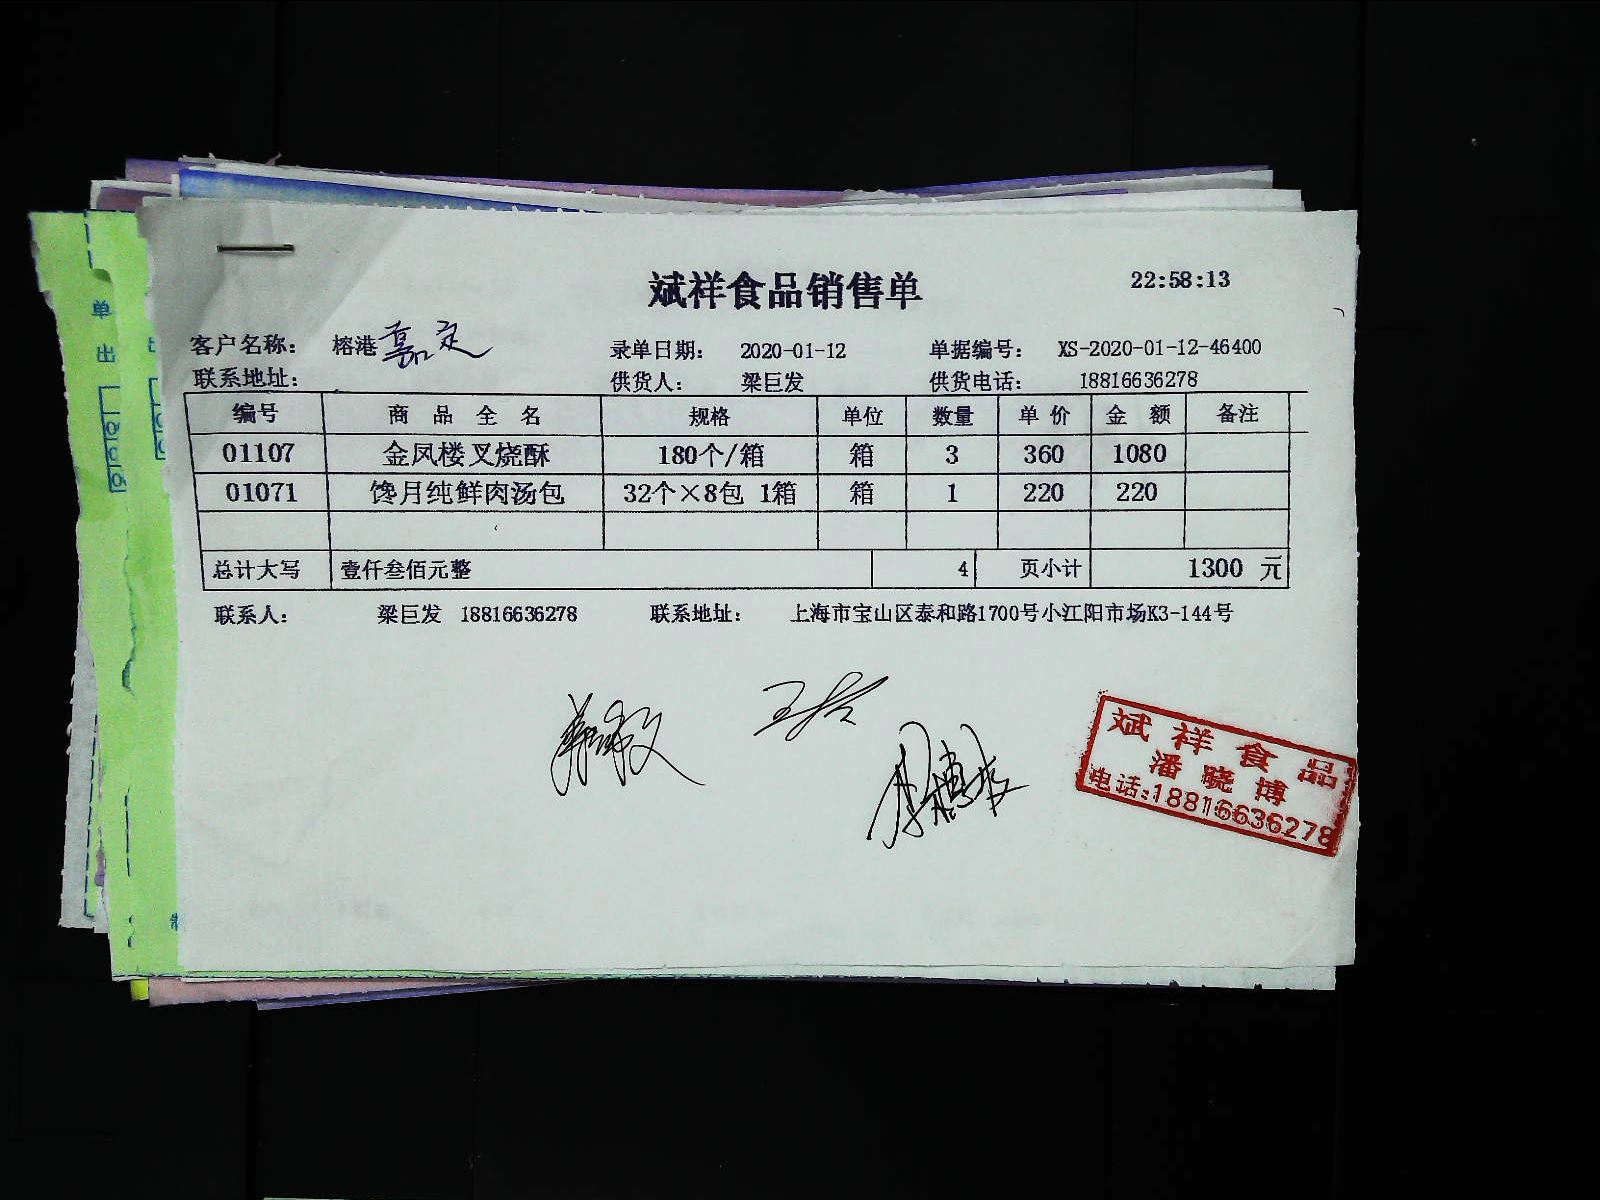 斌祥食品销售单 22:58:13
客户名称： 榕港 嘉定 录单日期： 2020-01-12 单据编号： XS-2020-01-12-46400
联系地址： 供货人： 梁巨发 供货电话： 18816636278
编号 商品全名 规格 单位 数量 单价 金额 备注
01107 金凤楼叉烧酥 180个/箱 箱 3 360 1080
01071 馋月纯鲜肉汤包 32个×8包 1箱 箱 1 220 220
总计大写 壹仟叁佰元整 4 页小计 1300 元
联系人： 梁巨发 18816636278 联系地址： 上海市宝山区泰和路1700号小江阳市场K3-144号
斌祥食品
潘晓博
电话:18816636278
单
出